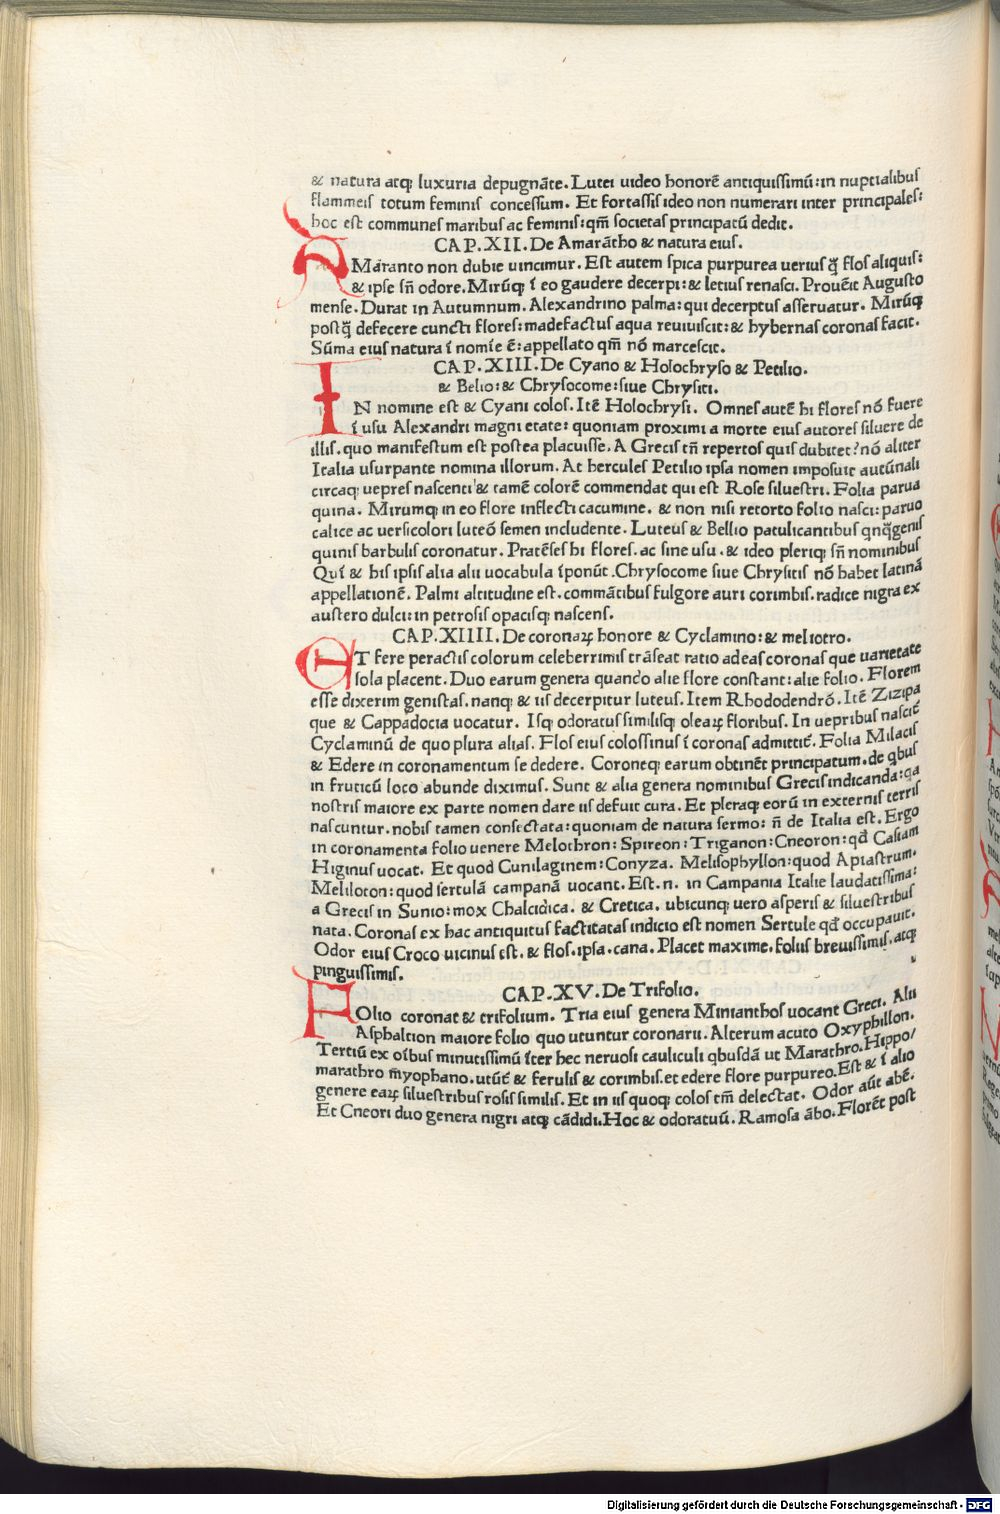 & natura atq; luxuria depugnāte. Lutei uideo honorē antiquissimū: in nuptialibuſ
flammeiſ totum feminiſ concessum. Et fortassiſ ideo non numerari inter principaleſ:
hoc eſt communeſ maribuſ ac feminiſ: qm̄ societaſ principatū dedit.
CAP. XII. De Amarātho & natura eiuſ.
AMaranto non dubie uincimur. Eſt autem ſpica purpurea ueriuſ q̄ȝ floſ aliquiſ:
& ipse sñ odore. Mirūq; ī eo gaudere decerpi: & letiuſ renaſci. Prouēit Auguſto
mense. Durat in Autumnum. Alexandrino palma: qui decerptuſ aſſeruatur. Mirūq;
poſtq̄ȝ defecere cuncti floreſ: madefactuſ aqua reuiuiſcit: & hybernaſ coronaſ facit.
Sūma eiuſ natura ī nomīe ē: appellato qm̄ nō marceſcit.
CAP. XIII. De Cyano & Holochryſo & Petilio.
& Belio: & Chryſocome: ſiue Chryſiti.
IN nomine eſt & Cyani coloſ. Itē Holochryſi. Omneſ autē hi floreſ nō fuere
ī uſu Alexandri magni etate: quoniam proximi a morte eiuſ autoreſ ſiluere de
illiſ. quo manifeſtum eſt poſtea placuiſſe. A Greciſ tñ repertoſ quiſ dubitet? nō aliter
Italia uſurpante nomina illorum. At herculeſ Petilio ipſa nomen imposuit autūnali
circaq; uepreſ naſcenti & tamē colorē commendat qui eſt Roſe ſilueſtri. Folia parua
quina. Mirumq; in eo flore inflecti cacumine. & non niſi retorto folio naſci: paruo
calice ac uerſicolori luteō ſemen includente. Luteuſ & Bellio patulicantibuſ qnq̄geniſ
quiniſ barbuliſ coronatur. Pratēſeſ hi floreſ. ac ſine uſu. & ideo pleriq; sñ nominibuſ
Quī & hiſ ipſiſ alia alii uocabula īponūt. Chryſocome ſiue Chryſitiſ nō habet latinā
appellationē. Palmi altitudine eſt. commātibuſ fulgore auri corimbiſ. radice nigra ex
auſtero dulci: in petroſiſ opaciſq; naſcenſ.
CAP. XIIII. De coronaꝝ honore & Cyclamino: & meliotro.
ET fere peractiſ colorum celeberrimiſ trāſeat ratio ad eaſ coronaſ que uarietate
ſola placent. Duo earum genera quando alie flore conſtant: alie folio. Florem
eſſe dixerim geniſtaſ. nanq; & iiſ decerpitur luteuſ. Item Rhododendrō. Itē Zizipa
que & Cappadocia uocatur. Iſq; odoratuſ ſimiliſq; oleaꝝ floribuſ. In uepribuſ naſcit̄
Cyclaminū de quo plura aliaſ. Floſ eiuſ coloſſinuſ ī coronaſ admittit̄. Folia Milaciſ
& Edere in coronamentum ſe dedere. Coroneq; earum obtinēt principatum. de qbuſ
in fruticū loco abunde diximuſ. Sunt & alia genera nominibuſ Greciſ indicanda: qa
noſtriſ maiore ex parte nomen dare iiſ defuit cura. Et pleraq; eorū in externiſ terriſ
naſcuntur. nobiſ tamen conſectata: quoniam de natura ſermo: ñ de Italia eſt. Ergo
in coronamenta folio uenere Melothron: Spireon: Triganon: Cneoron: qd̄ Caſiam
Higinuſ uocat. Et quod Cunilaginem: Conyza. Meliſophyllon: quod Apiaſtrum.
Meliloton: quod ſertulā campanā uocant. Eſt. n. in Campania Italie laudatiſſima:
a Greciſ in Sunio: mox Chalcidica. & Cretica. ubicunq; uero aſperiſ & ſilueſtribuſ
nata. Coronaſ ex hac antiquituſ factitataſ indicio eſt nomen Sertule qd̄ occupauit.
Odor eiuſ Croco uicinuſ eſt. & floſ. ipſa. cana. Placet maxime. foliiſ breuiſſimiſ. atq;
pinguiſſimiſ.
CAP. XV. De Trifolio.
FOlio coronat & trifolium. Tria eiuſ genera Minianthoſ uocant Greci. Alii
Aſphaltion maiore folio quo utuntur coronarii. Alterum acuto Oxyphillon.
Tertiū ex oībuſ minutiſſimū īter hec neruoſi cauliculi qbuſdā ut Marathro. Hippo/
marathro m̄yophano. utūt̄ & feruliſ & corimbiſ. et edere flore purpureo. Eſt & ī alio
genere eaꝝ ſilueſtribuſ roſiſ ſimiliſ. Et in iiſ quoq; coloſ tm̄ delectat. Odor aūt abē.
Et Cneori duo genera nigri atq; cādidi. Hoc & odoratuū. Ramoſa ābo. Florēt poſt
Digitalisierung gefördert durch die Deutsche Forschungsgemeinschaft - DFG